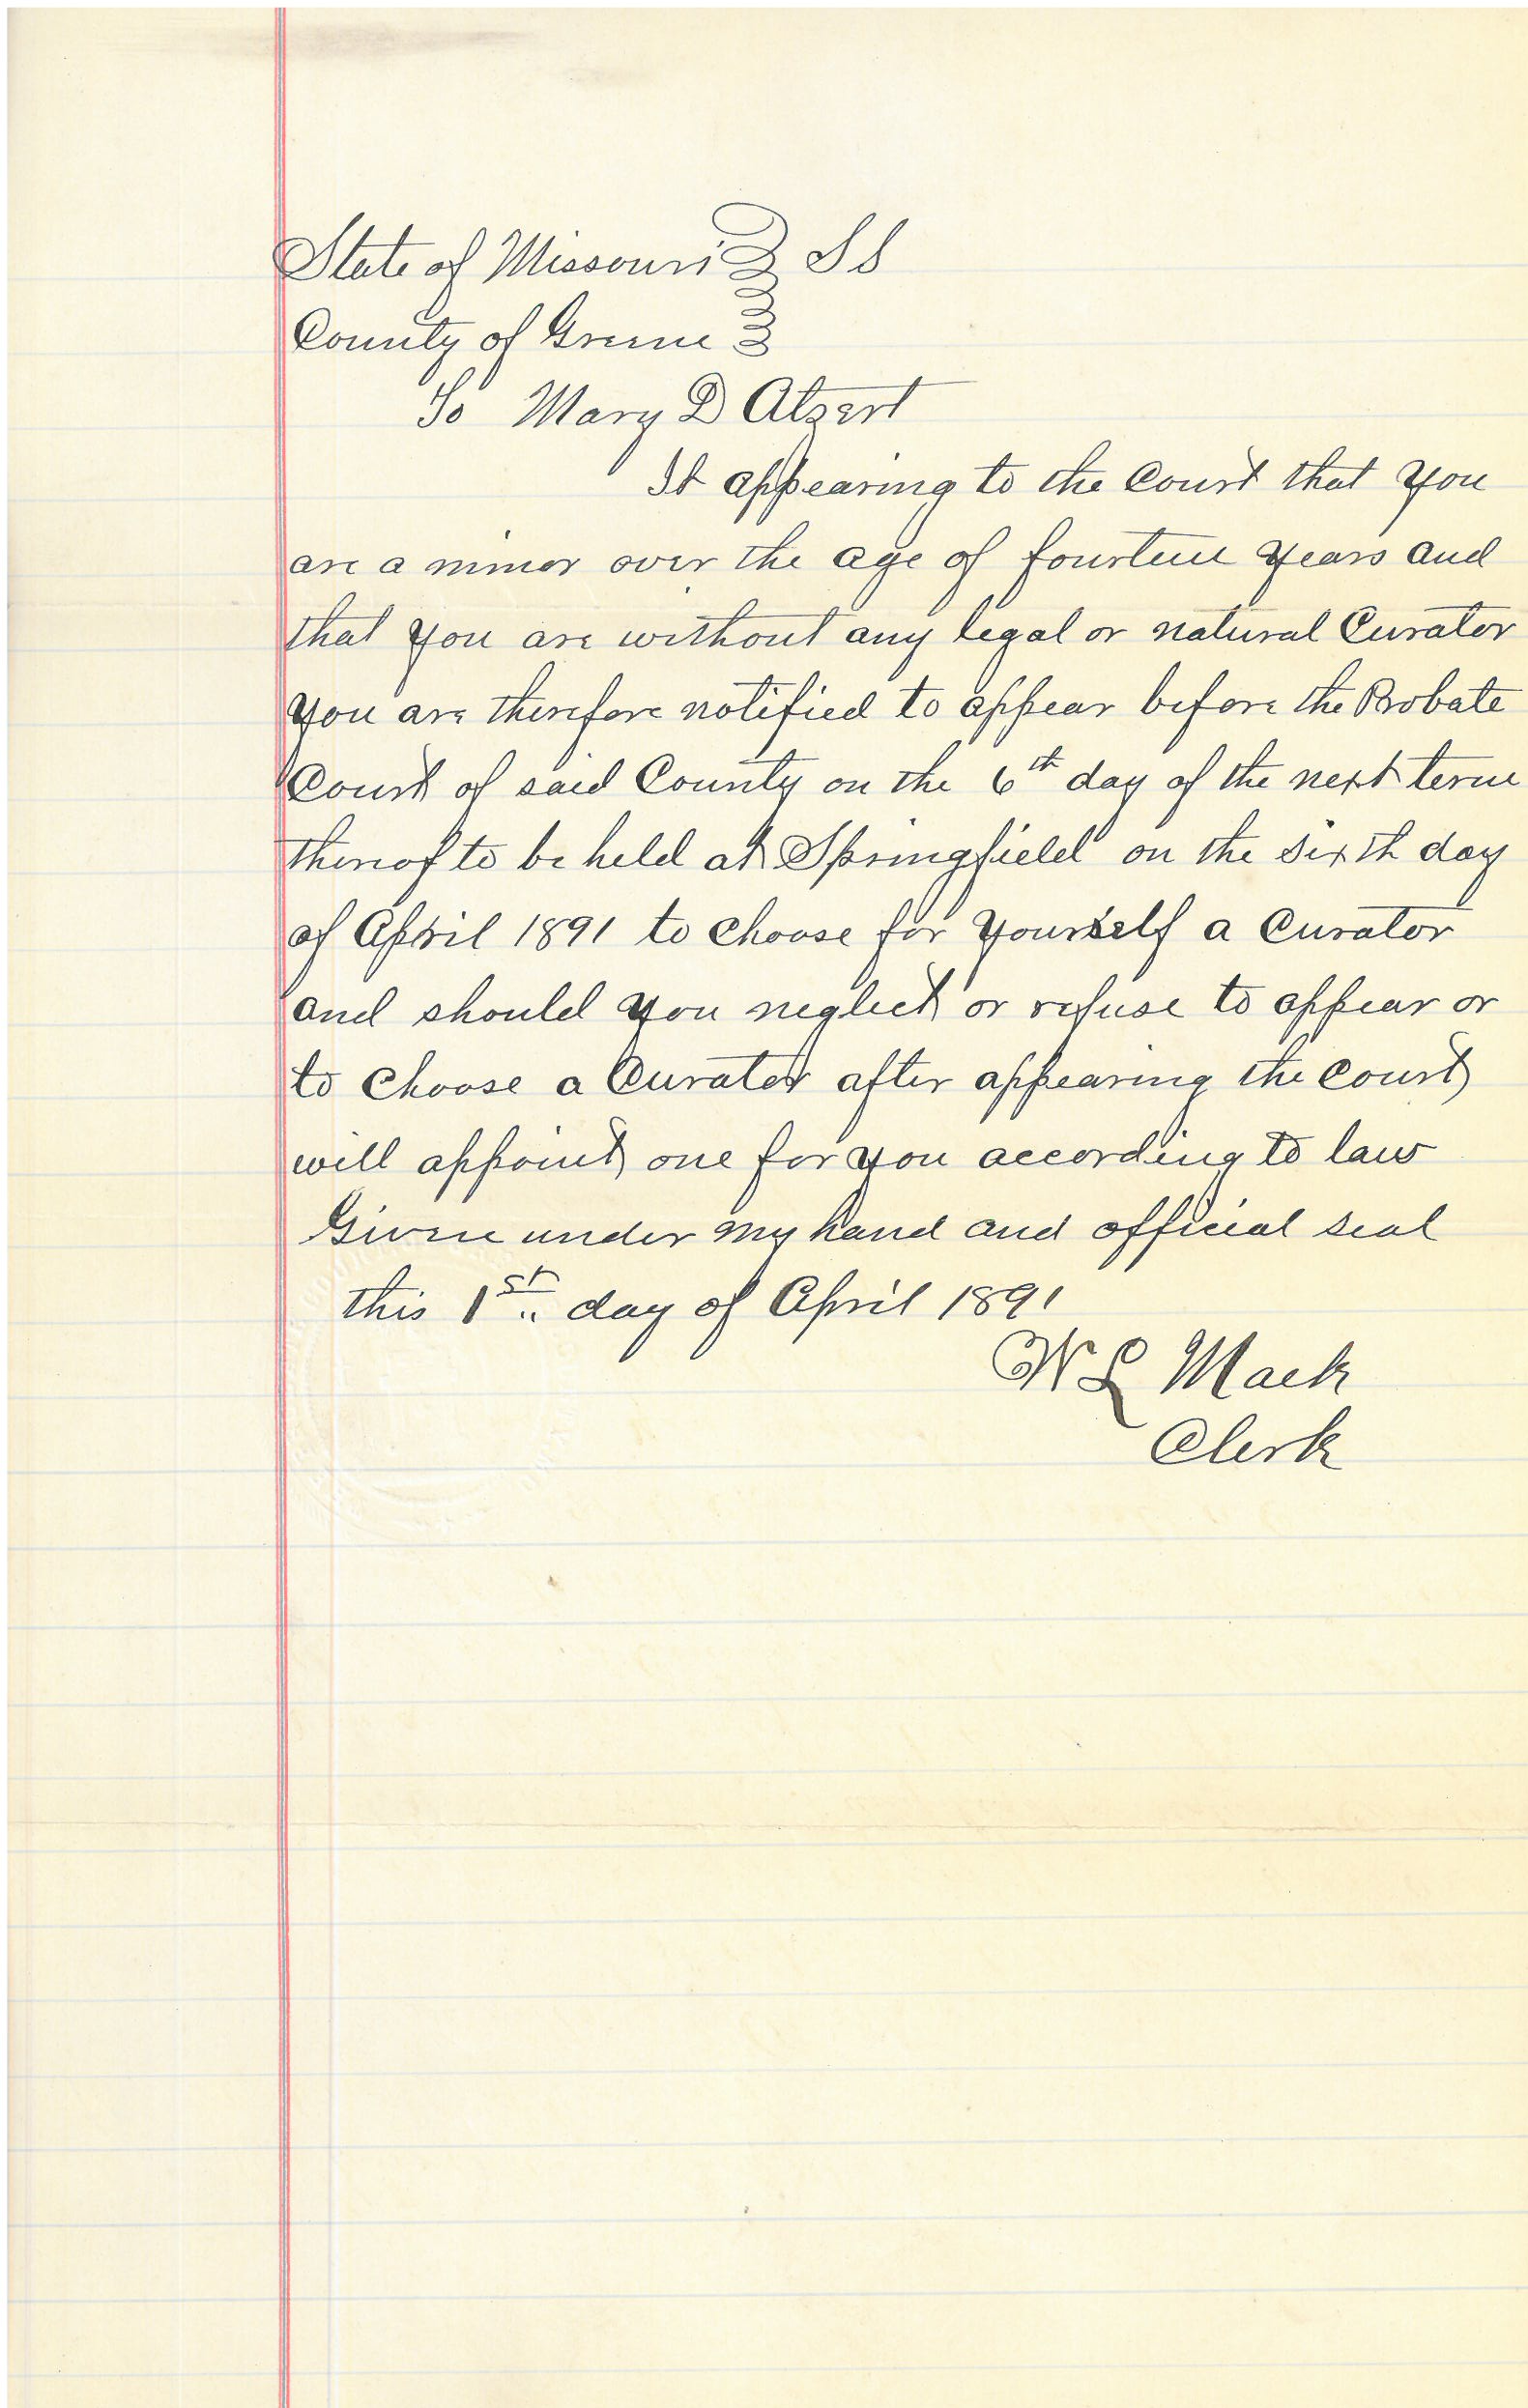 State of Missouri } SS
County of Greene }
To Mary D Atzert
It appearing to the Court that you
are a minor over the age of fourteen years and
that you are without any legal or natural Curator
you are therefore notified to appear before the Probate
Court of said County on the 6th day of the next term
thereof to be held at Springfield on the sixth day
of April 1891 to choose for yourself a Curator
and should you neglect or refuse to appear or
to choose a Curator after appearing the court
will appoint one for you according to law
Given under my hand and official seal
this 1st day of April 1891
W L Mack
Clerk